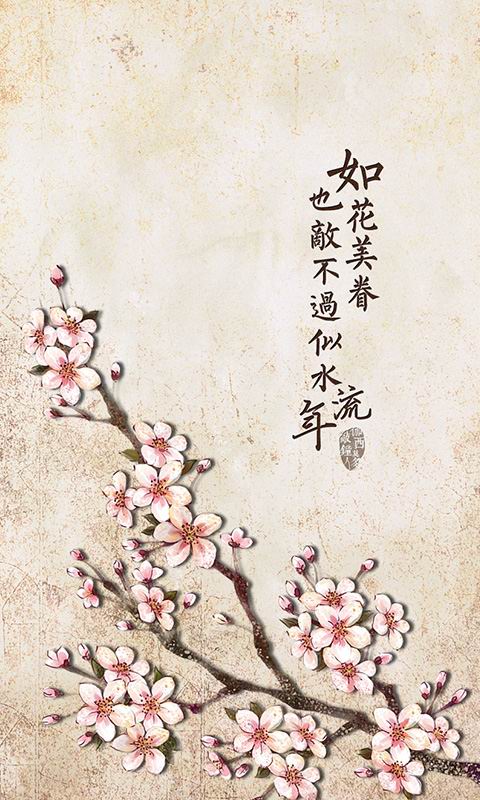 如花美眷
也敵不過似水流年